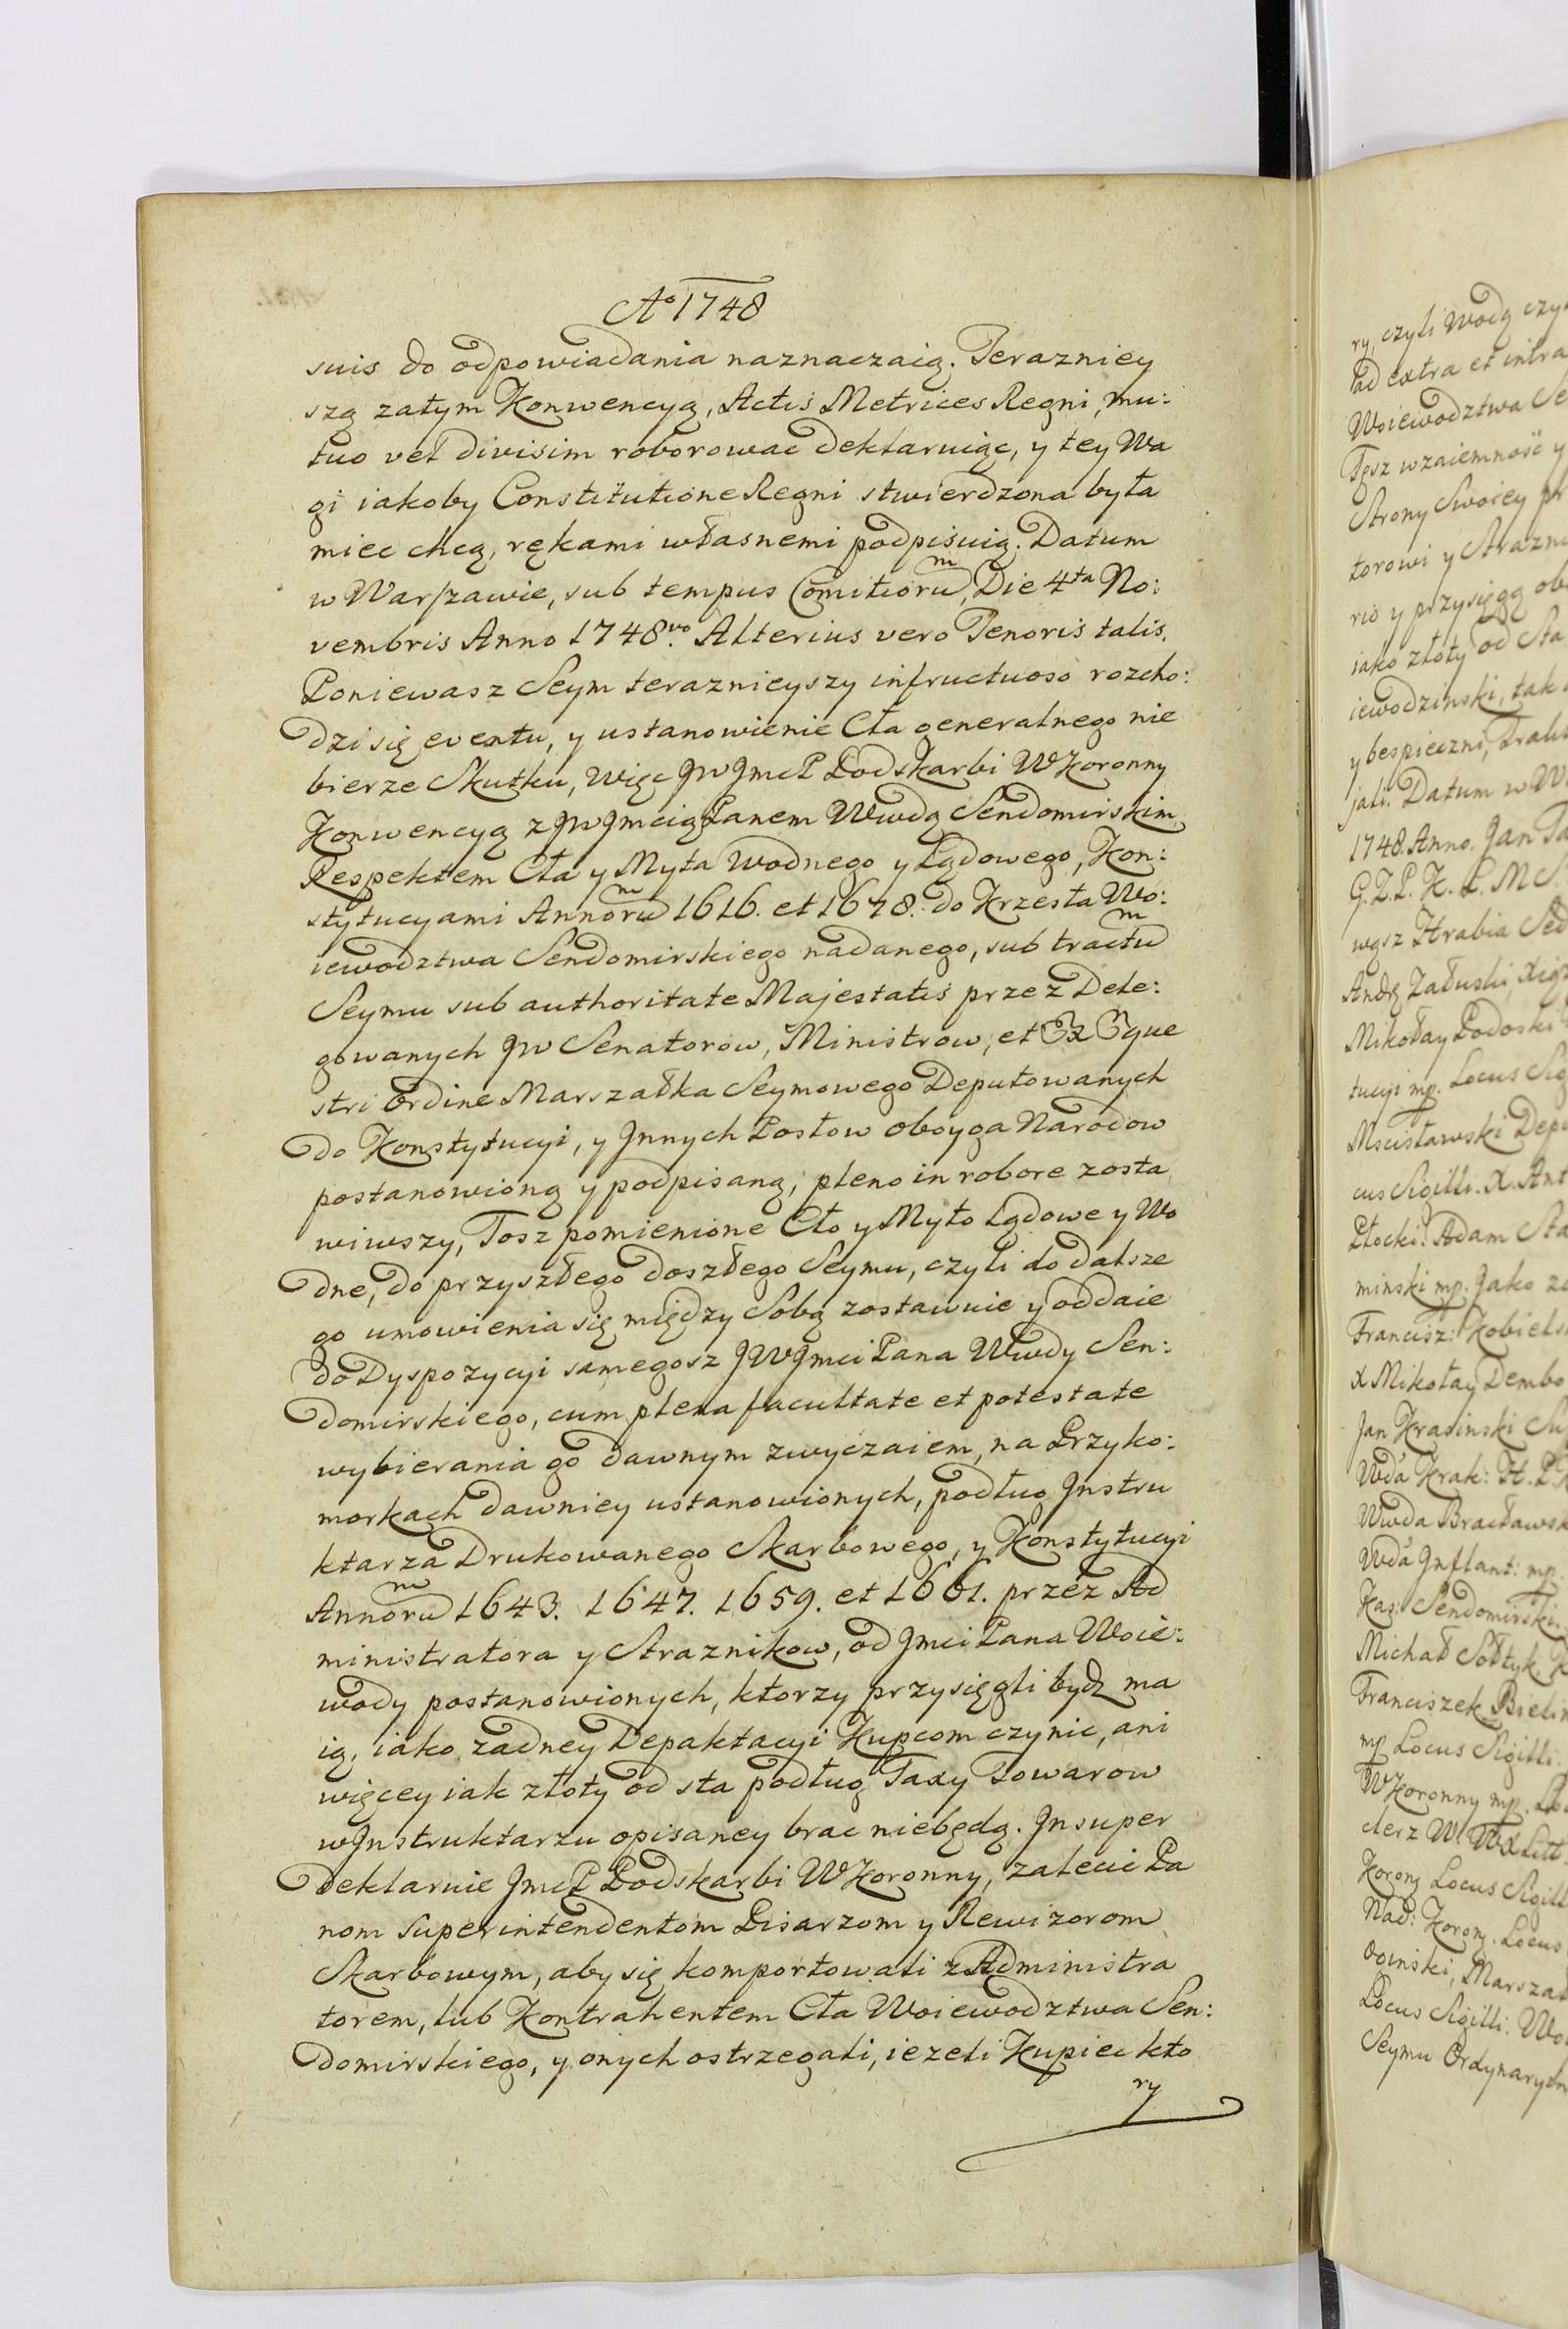 Ao 1748
suis do odpowiadania naznaczaią. Terazniey
szą zatym Konwencyą, Actis Metrices Regni, mu:
tuo vel divisim roborowac deklaruiąc, y tey Wa
gi iakoby Constitutione Regni stwierdzona była
miec chcą, rękami własnemi podpisuią. Datum
w Warszawie, sub tempus Comitiorum, Die 4ta No:
vembris Anno 1748vo. Alterius vero Tenoris talis.
Poniewasz Seym teraznieyszy infructuoso rozcho:
dzi się eventu, y ustanowienie Cła generalnego nie
bierze Skutku, Więc JW JmcP Podskarbi WKoronny
Konwencyą z JWJmcią Panem Wwdą Sendomirskim,
Respektem Cła y Myta Wodnego y Lądowego, Kon:
stytucyami Annorum 1616. et 1678. do Krzesła Wo:
iewodztwa Sendomirskiego nadanego, sub tractum
Seymu sub authoritate Majestatis przez Dele:
gowanych JW Senatorow, Ministrow, et Ex Eque
stri Ordine Marszałka Seymowego Deputowanych
do Konstytucyi, y Jnnych Posłow oboyga Narodow
postanowioną y podpisaną, pleno in robore zosta
wiwszy, Tosz pomienione Cło y Myto Lądowe y Wo
dne, do przyszłego doszłego Seymu, czyli do dalsze
go umowienia się między Sobą zostawuie y oddaie
do Dyspozycyi samegosz JWJmci Pana Wwdy Sen:
domirskiego, cum plena facultate et potestate
wybierania go dawnym zwyczaiem, na Przyko:
morkach dawniey ustanowionych, podług Jnstru
ktarza Drukowanego Skarbowego, y Konstytucyi
Annorum 1643. 1647. 1659. et 1661. przez Ad
ministratora y Straznikow, od Jmci Pana Woie:
wody postanowionych, ktorzy przysięgli bydz ma
ią, iako zadney Depaktacyi Kupcom czynic, ani
więcey iak złoty od sta podług Taxy Towarow
w Jnstruktarzu opisaney brac niebędą. Jnsuper
deklaruie JmcP Podskarbi WKoronny, zalecic Pa
nom Superintendentom Pisarzom y Rewizorom
Skarbowym, aby się komportowali z Administra
torem, lub Kontrahentem Cła Woiewodztwa Sen:
domirskiego, y onych ostrzegali, iezeli Kupiec kto
ry
ry, czyli Wodą czy
ad extra et intra
Woiewodztwa Se
Tosz wzaiemność y
Strony Swoiey pr
torowi y Strazni
rio y przysięgą ob
iako złoty od Sta
iewodzinski, tak
y bespieczni,
jali. Datum w W
1748. Anno. Jan Ta
G. Z. P. K. L. M S
wąsz Hrabia Sed
Andrz Załuski, Xiąz
Mikołay Podoski
tucyi mp. Locus Sig
Mscisławski Depu
cus Sigilli. X. Ant
Płocki. Adam Sta
minski mp. Jako ze
Francisz: Kobiels
X Mikołay Dembo
Jan Krasinski Su
Wda Krak: H. P
Wwda Bracławsk
Wda Jnflant: mp.
Kasz: Sendomirski
Michał Sołtyk K
Franciszek Bielin
mp Locus Sigilli
WKoronny mp. Lo
clerz W. W. X Litt
Koron Locus Sigill
Nad: Koron. Locus
Marszał
Locus Sigilli. Wo
Seymu Ordynaryin